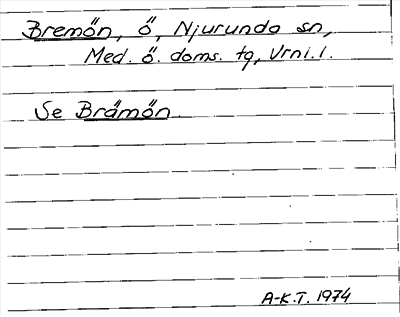 Bremön, ö, Njurunda sn,
Med. ö. doms. tg, Vrni. l.
Se Brämön.
A-K.T. 1974